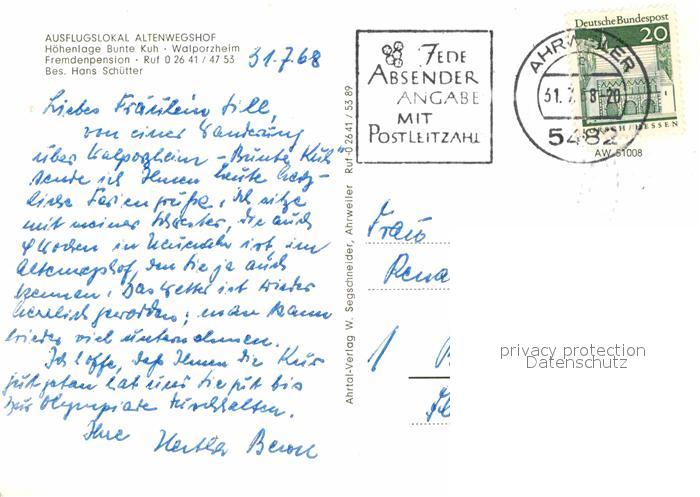 AUSFLUGSLOKAL ALTENWEGSHOF
Höhenlage Bunte Kuh · Walporzheim
Fremdenpension · Ruf 0 26 41 / 47 53
Bes. Hans Schütter
31.7.68
Liebes Fräulein Sill,
von einer Wanderung
über Walporzheim – Bunte Kuh
sende ich Ihnen heute herz-
liche Feriengrüße. Ich sitze
mit meiner Schwester, die auch
4 Wochen in Neuenahr ist, im
Altenwegshof, den Sie ja auch
kennen. Das Wetter ist wieder
herrlich geworden; man kann
wieder viel unternehmen.
Ich hoffe, daß Ihnen die Kur
gut getan hat und Sie gut bis
zur Olympiade durchhalten.
Ihre Hertha
Ahrtal-Verlag W. Segschneider, Ahrweiler Ruf 0 26 41 / 53 89
JEDE
ABSENDER
ANGABE
MIT
POSTLEITZAHL
AHRWEILER
31.7. 8.-20
5482
Deutsche Bundespost
20
HESSEN
AW 51008
Frau
Rena
privacy protection
Datenschutz